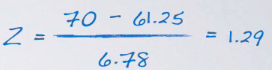 Z = \frac{70 - 61.25}{6.78} = 1.29